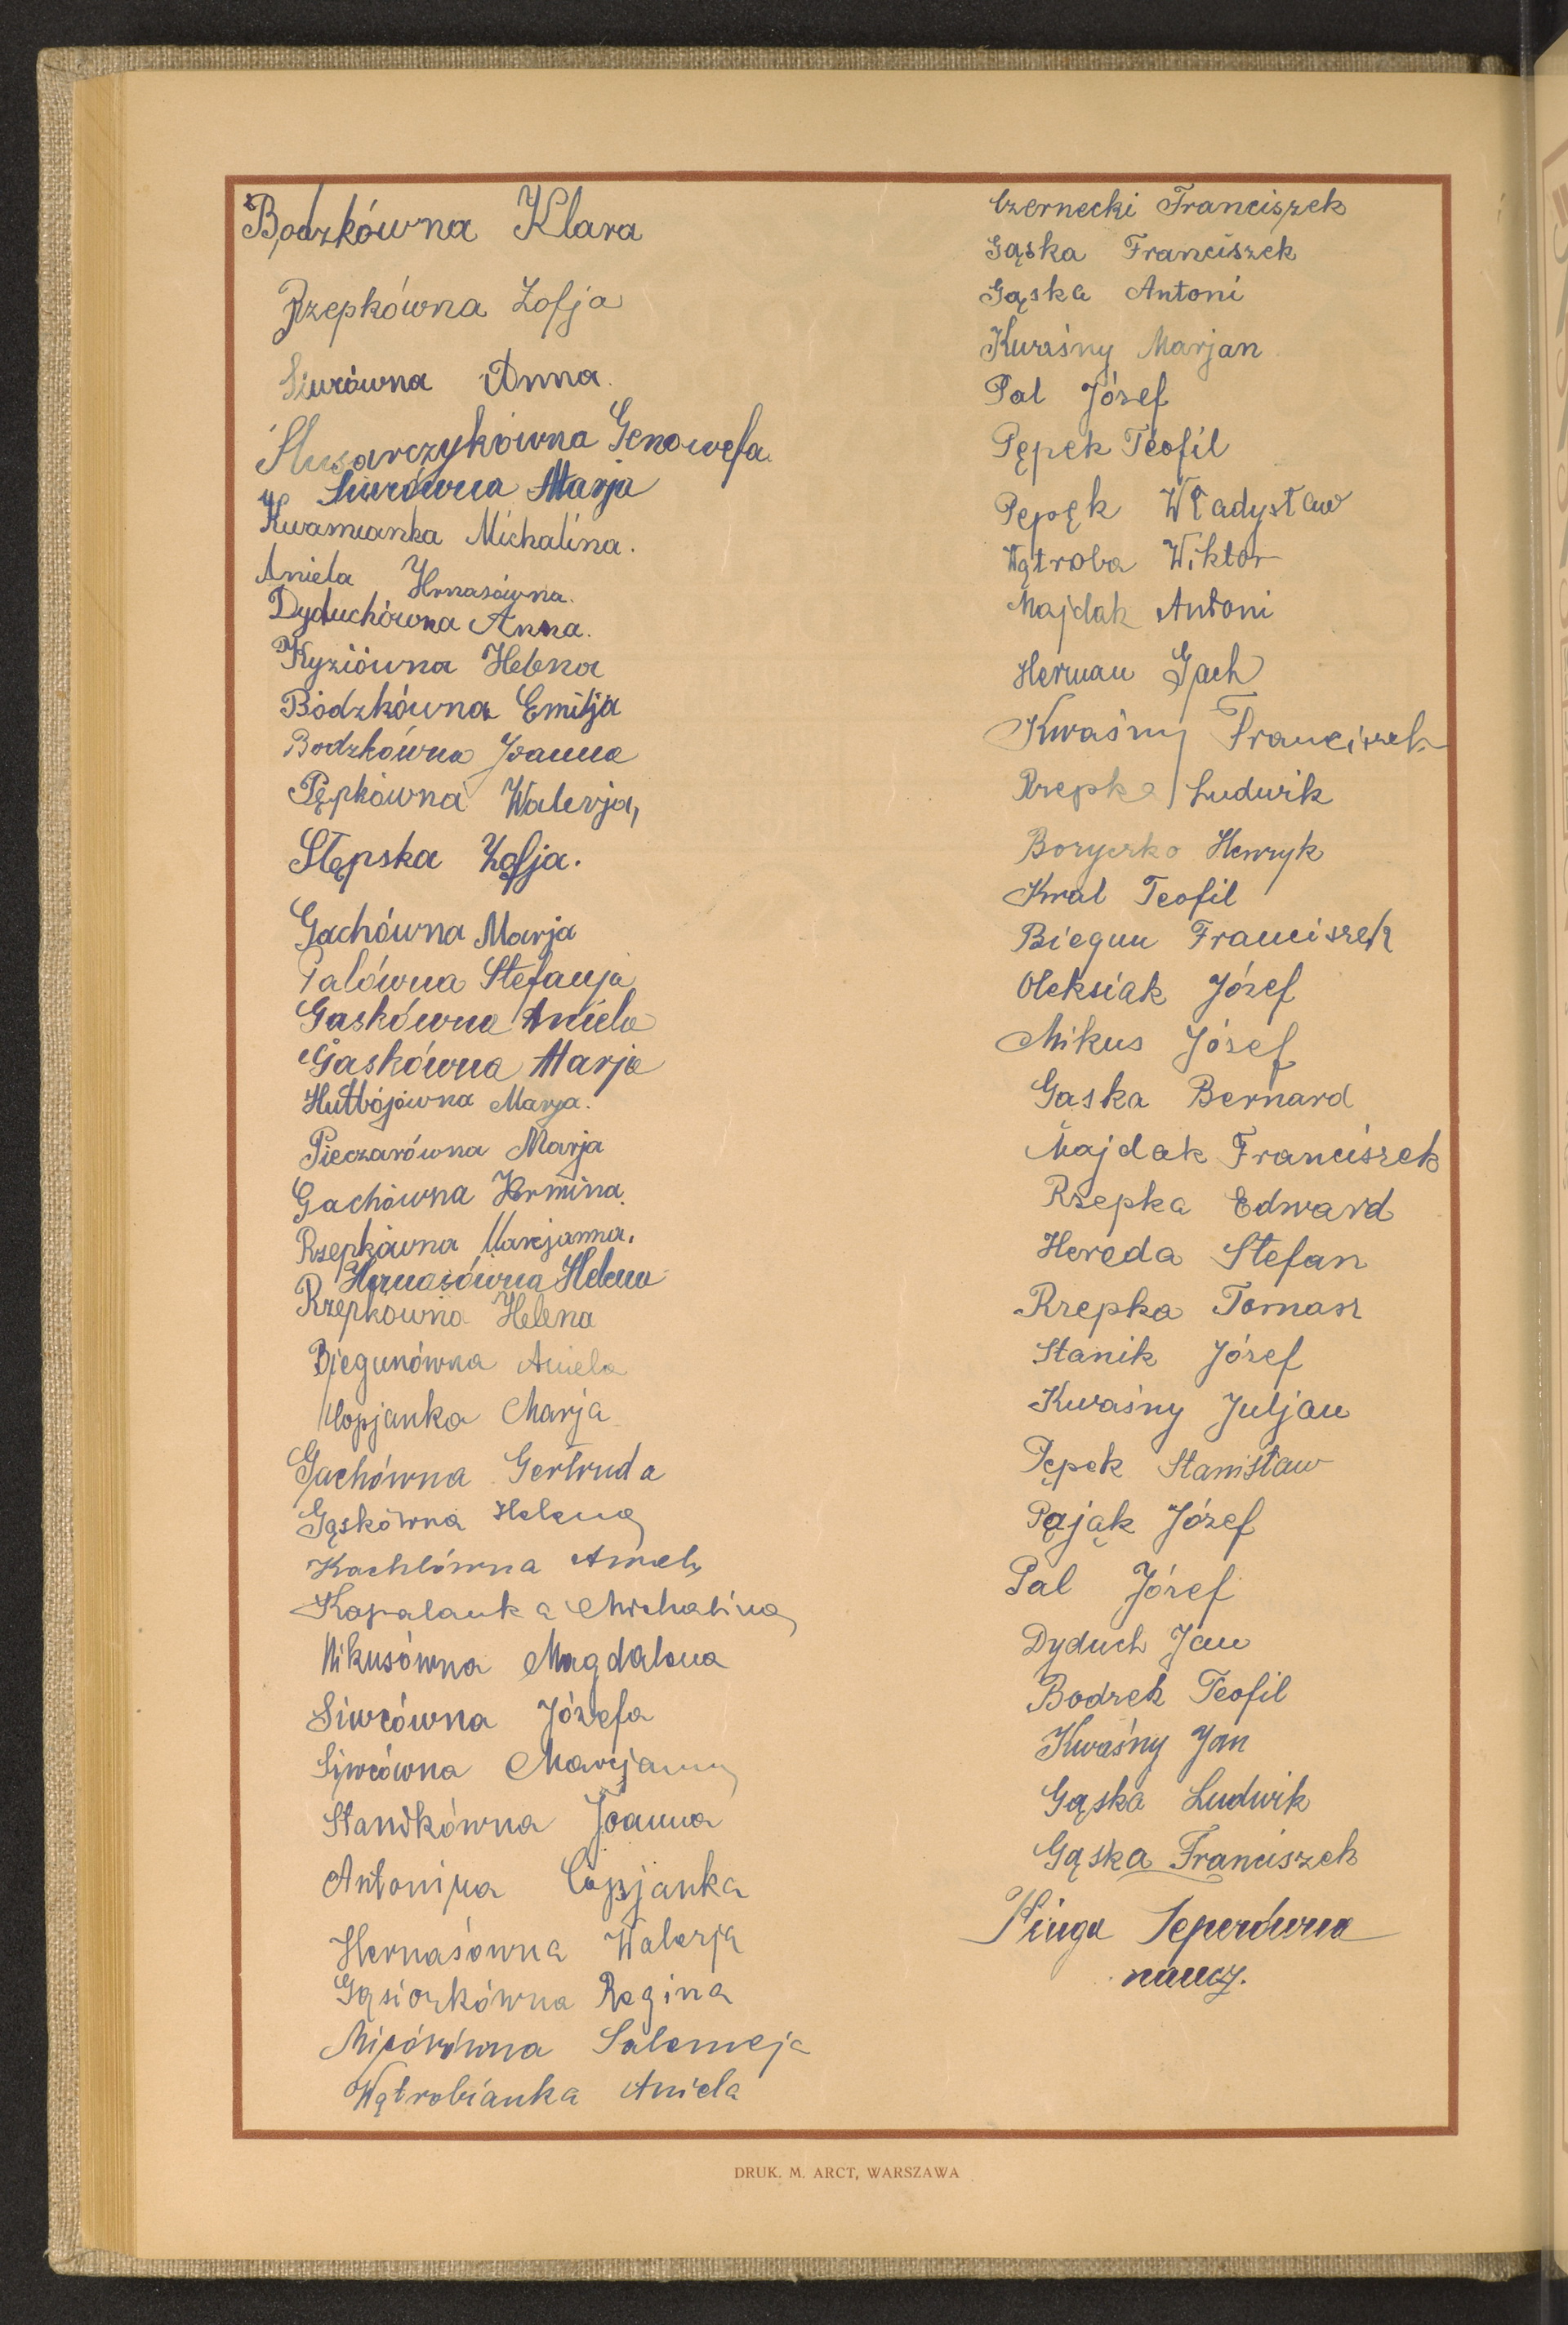 Bodzkówna Klara
Rzepkówna Zofja
Siwcówna Anna.
Ślusarczykówna Genowefa.
Siwcówna Marja
Michalina.
Aniela
Dyduchówna Anna.
Kyziówna Helena
Bodzkówna Emilja
Bodzkówna Joanna
Pępkówna Walerja,
Stępska Zofja.
Gachówna Marja
Palówna Stefanja
Gaskówna Aniela
Gaskówna Marja
Marja.
Pieczarówna Marja
Gachówna Hermina.
Rzepkówna Marcjanna.
Hernasówna Helena
Rzepkówna Helena
Biegunówna Aniela
Copjanka Marja
Gachówna Gertruda
Gąskówna Helena
Kachlówna Aniela
Kapalanka Michalina
Mikusówna Magdalena
Siwcówna Józefa
Siwcówna Marcjanna
Stanikówna Joanna
Antonina Copjanka
Hernasówna Walerja
Gąsiorkówna Regina
Salomeja
Wątrobianka Aniela
Czernecki Franciszek
Gąska Franciszek
Gąska Antoni
Kwaśny Marjan
Pal Józef
Pępek Teofil
Pępek Władysław
Wątroba Wiktor
Majdak Antoni
Herman Gach
Kwaśny Franciszek
Rzepka Ludwik
Boryczko Henryk
Kral Teofil
Biegun Franciszek
Oleksiak Józef
Mikus Józef
Gaska Bernard
Majdak Franciszek
Rzepka Edward
Hereda Stefan
Rzepka Tomasz
Stanik Józef
Kwaśny Juljan
Pępek Stanisław
Pająk Józef
Pal Józef
Dyduch Jan
Bodzek Teofil
Kwaśny Jan
Gąska Ludwik
Gąska Franciszek
Kinga Seperówna
naucz.
DRUK. M. ARCT, WARSZAWA